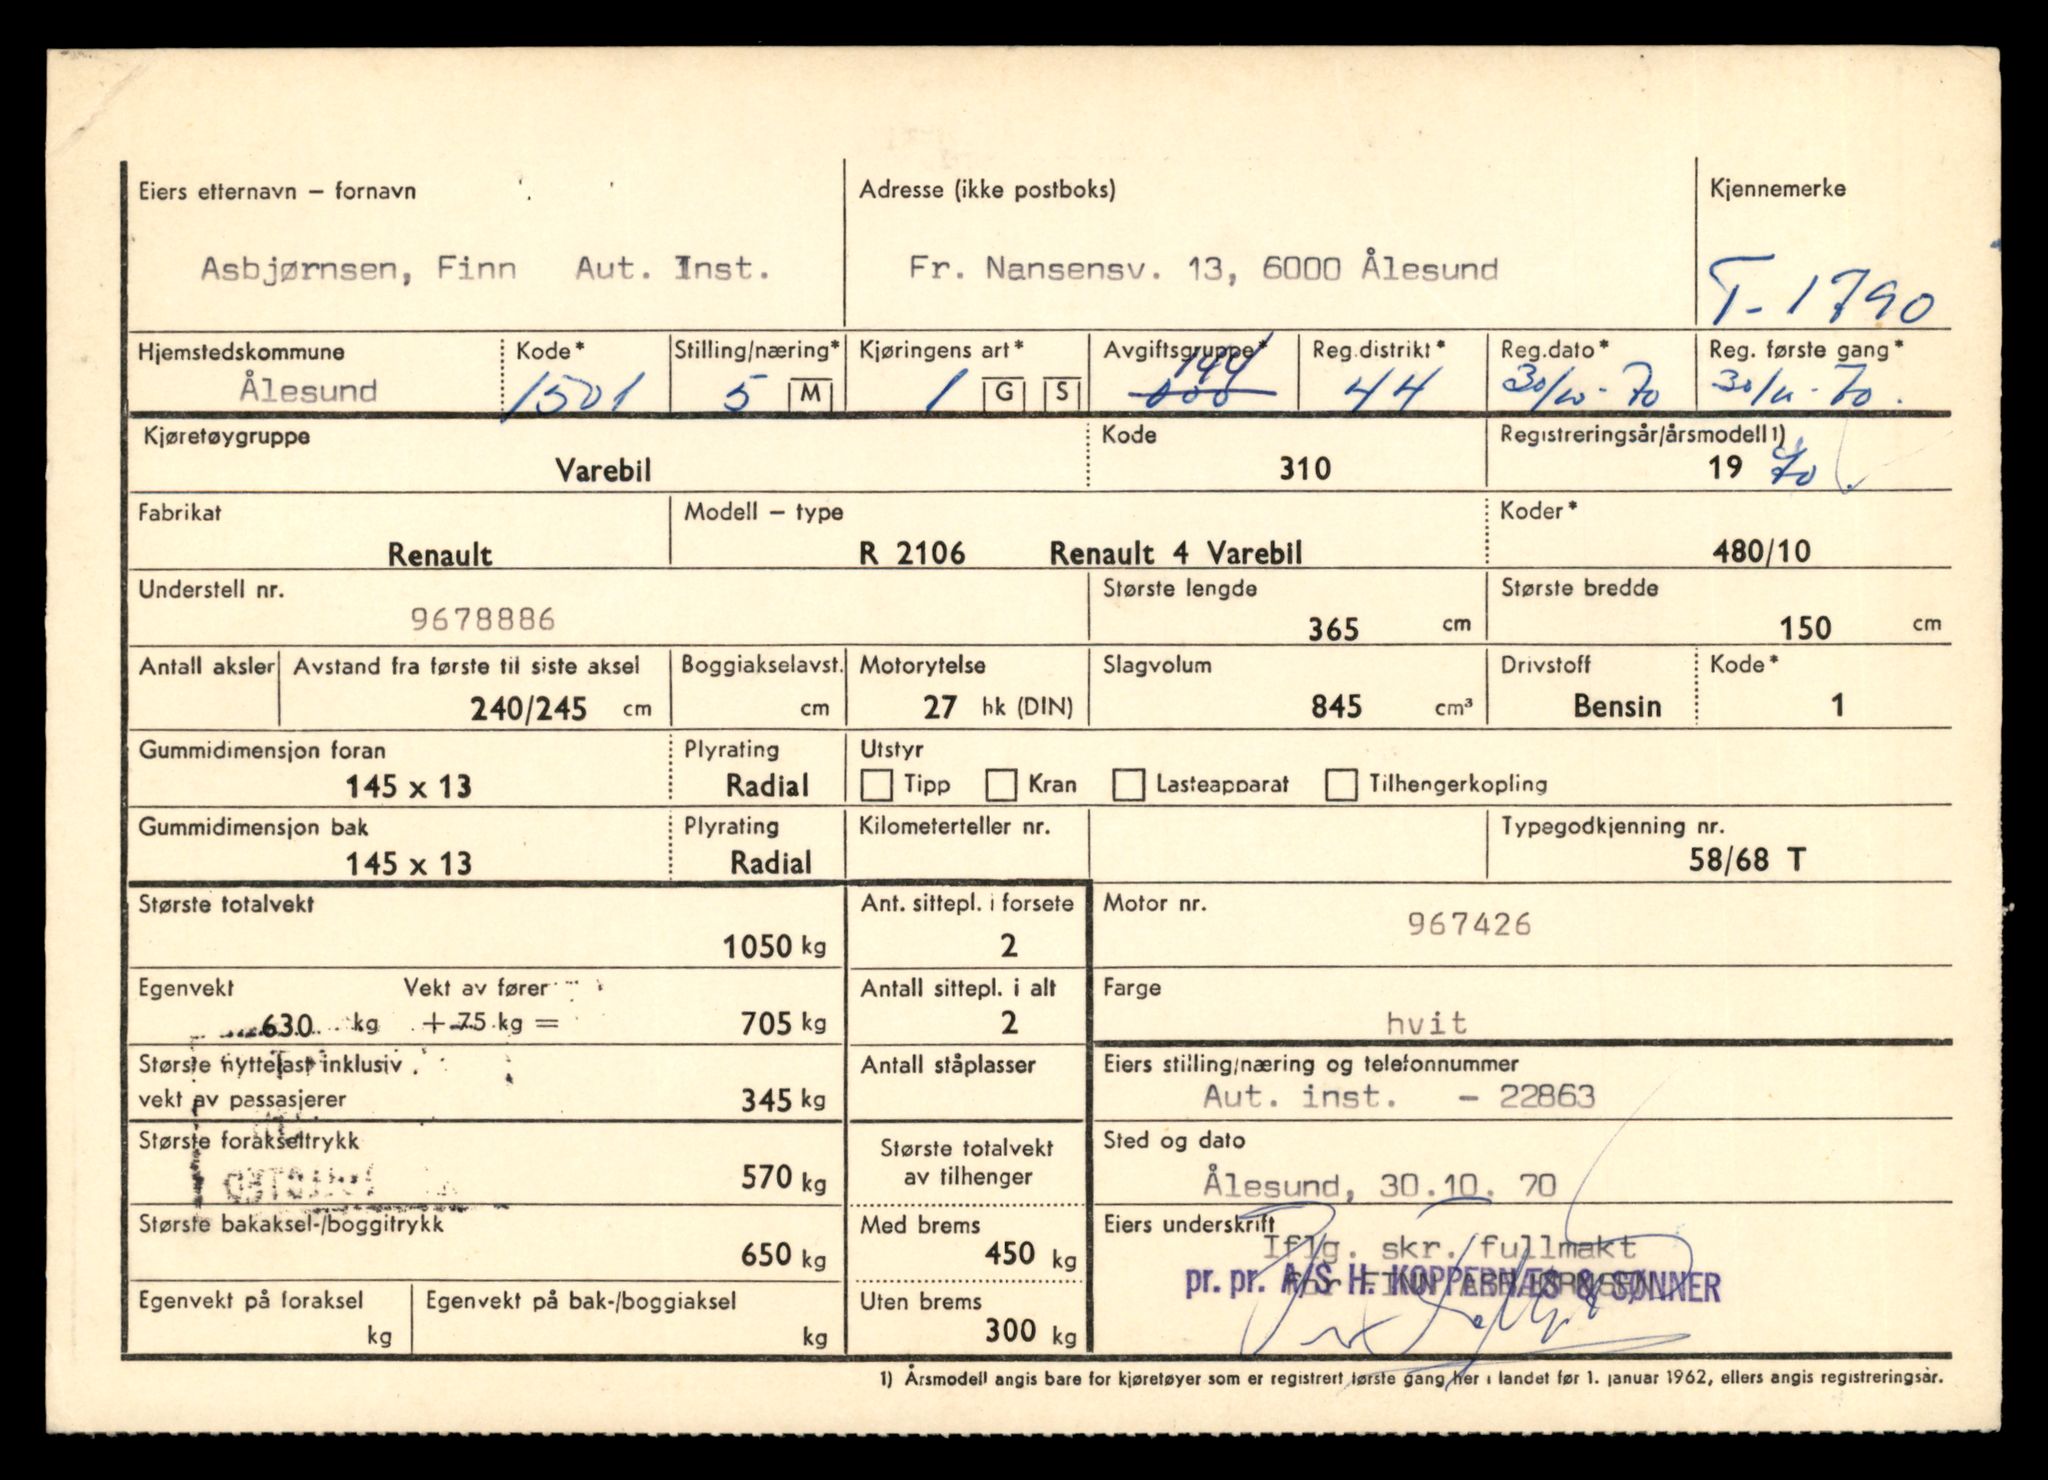 Eiers etternavn – fornavn
Adresse (ikke postboks)
Kjennemerke
Asbjørnsen, Finn Aut. Inst.
Fr. Nansensv. 13, 6000 Ålesund
T-1790
Hjemstedskommune Kode* Stilling/næring* Kjøringens art* Avgiftsgruppe* Reg.distrikt* Reg.dato* Reg. første gang*
144
Ålesund 1501 5 M 1 G S 000 44 30/10-70 30/10-70.
Kjøretøygruppe Kode Registreringsår/årsmodell 1)
Varebil 310 19 70.
Fabrikat Modell – type Koder*
Renault R 2106 Renault 4 Varebil 480/10
Understell nr. Største lengde Største bredde
9678886 365 cm 150 cm
Antall aksler Avstand fra første til siste aksel Boggiakselavst. Motorytelse Slagvolum Drivstoff Kode*
240/245 cm cm 27 hk (DIN) 845 cm³ Bensin 1
Gummidimensjon foran Plyrating Utstyr
145 x 13 Radial Tipp Kran Lasteapparat Tilhengerkopling
Gummidimensjon bak Plyrating Kilometerteller nr. Typegodkjenning nr.
145 x 13 Radial 58/68 T
Største totalvekt Ant. sittepl. i forsete Motor nr.
1050 kg 2 967426
Egenvekt Vekt av fører Antall sittepl. i alt Farge
630 kg + 75 kg = 705 kg 2 hvit
Største nyttelast inklusiv Antall ståplasser Eiers stilling/næring og telefonnummer
vekt av passasjerer 345 kg Aut. inst. - 22863
Største forakseltrykk Største totalvekt Sted og dato
570 kg av tilhenger Ålesund, 30.10.70
Største bakaksel-/boggitrykk Med brems Eiers underskrift
650 kg 450 kg Iflg. skr. fullmakt
for FINN ASBJØRNSEN
pr. pr. A/S H. KOPPERNÆS & SØNNER
Egenvekt på foraksel Egenvekt på bak-/boggiaksel Uten brems
kg kg 300 kg
1) Årsmodell angis bare for kjøretøyer som er registrert første gang her i landet før 1. januar 1962, ellers angis registreringsår.